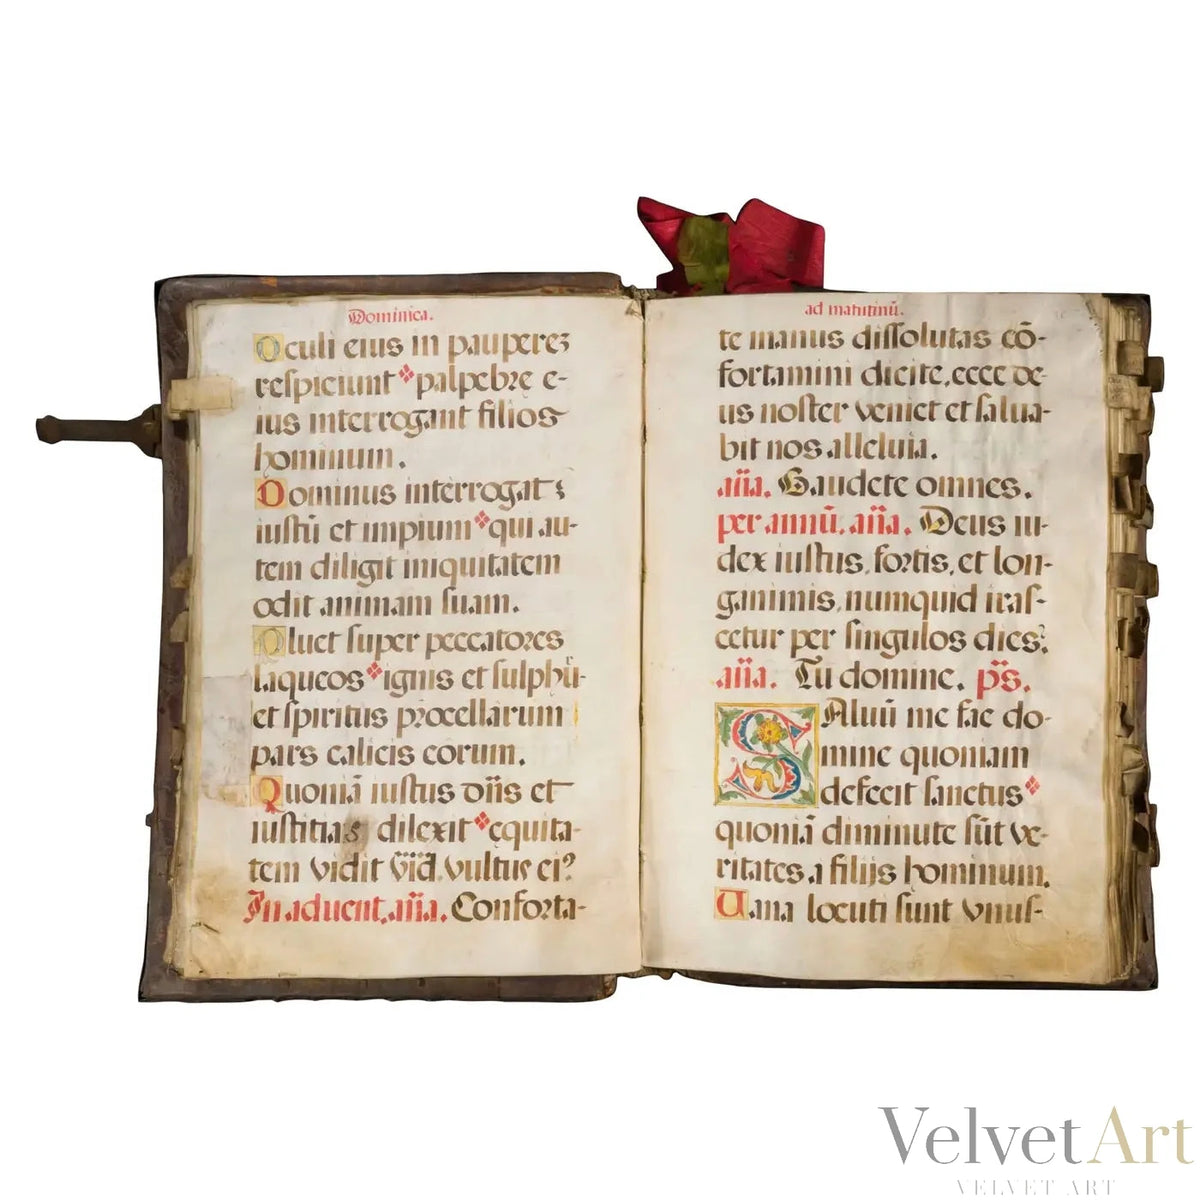 Dominica.
Oculi eius in pauperez
respiciunt palpebre e-
ius interrogant filios
hominum.
Dominus interrogat
iustū et impium qui au-
tem diligit iniquitatem
odit animam suam.
Pluet super peccatores
laqueos ignis et sulphū-
et spiritus procellarum
pars calicis eorum.
Quoniā iustus dn̄s et
iustitias dilexit equita-
tem vidit vultus ei?
In aduent. an̄a. Conforta-
ad matutinū.
te manus dissolutas cō-
fortamini dicite, ecce de-
us noster veniet et salua-
bit nos alleluia.
an̄a. Gaudete omnes.
per annū. an̄a. Deus iu-
dex iustus, fortis, et lon-
ganimis, numquid iras-
cetur per singulos dies?
an̄a. Tu domine. p̄s.
SAluū me fac do-
mine quoniam
defecit sanctus
quoniā diminute sūt ve-
ritates, a filijs hominum.
Uana locuti sunt vnus-
VelvetArt
VELVET ART